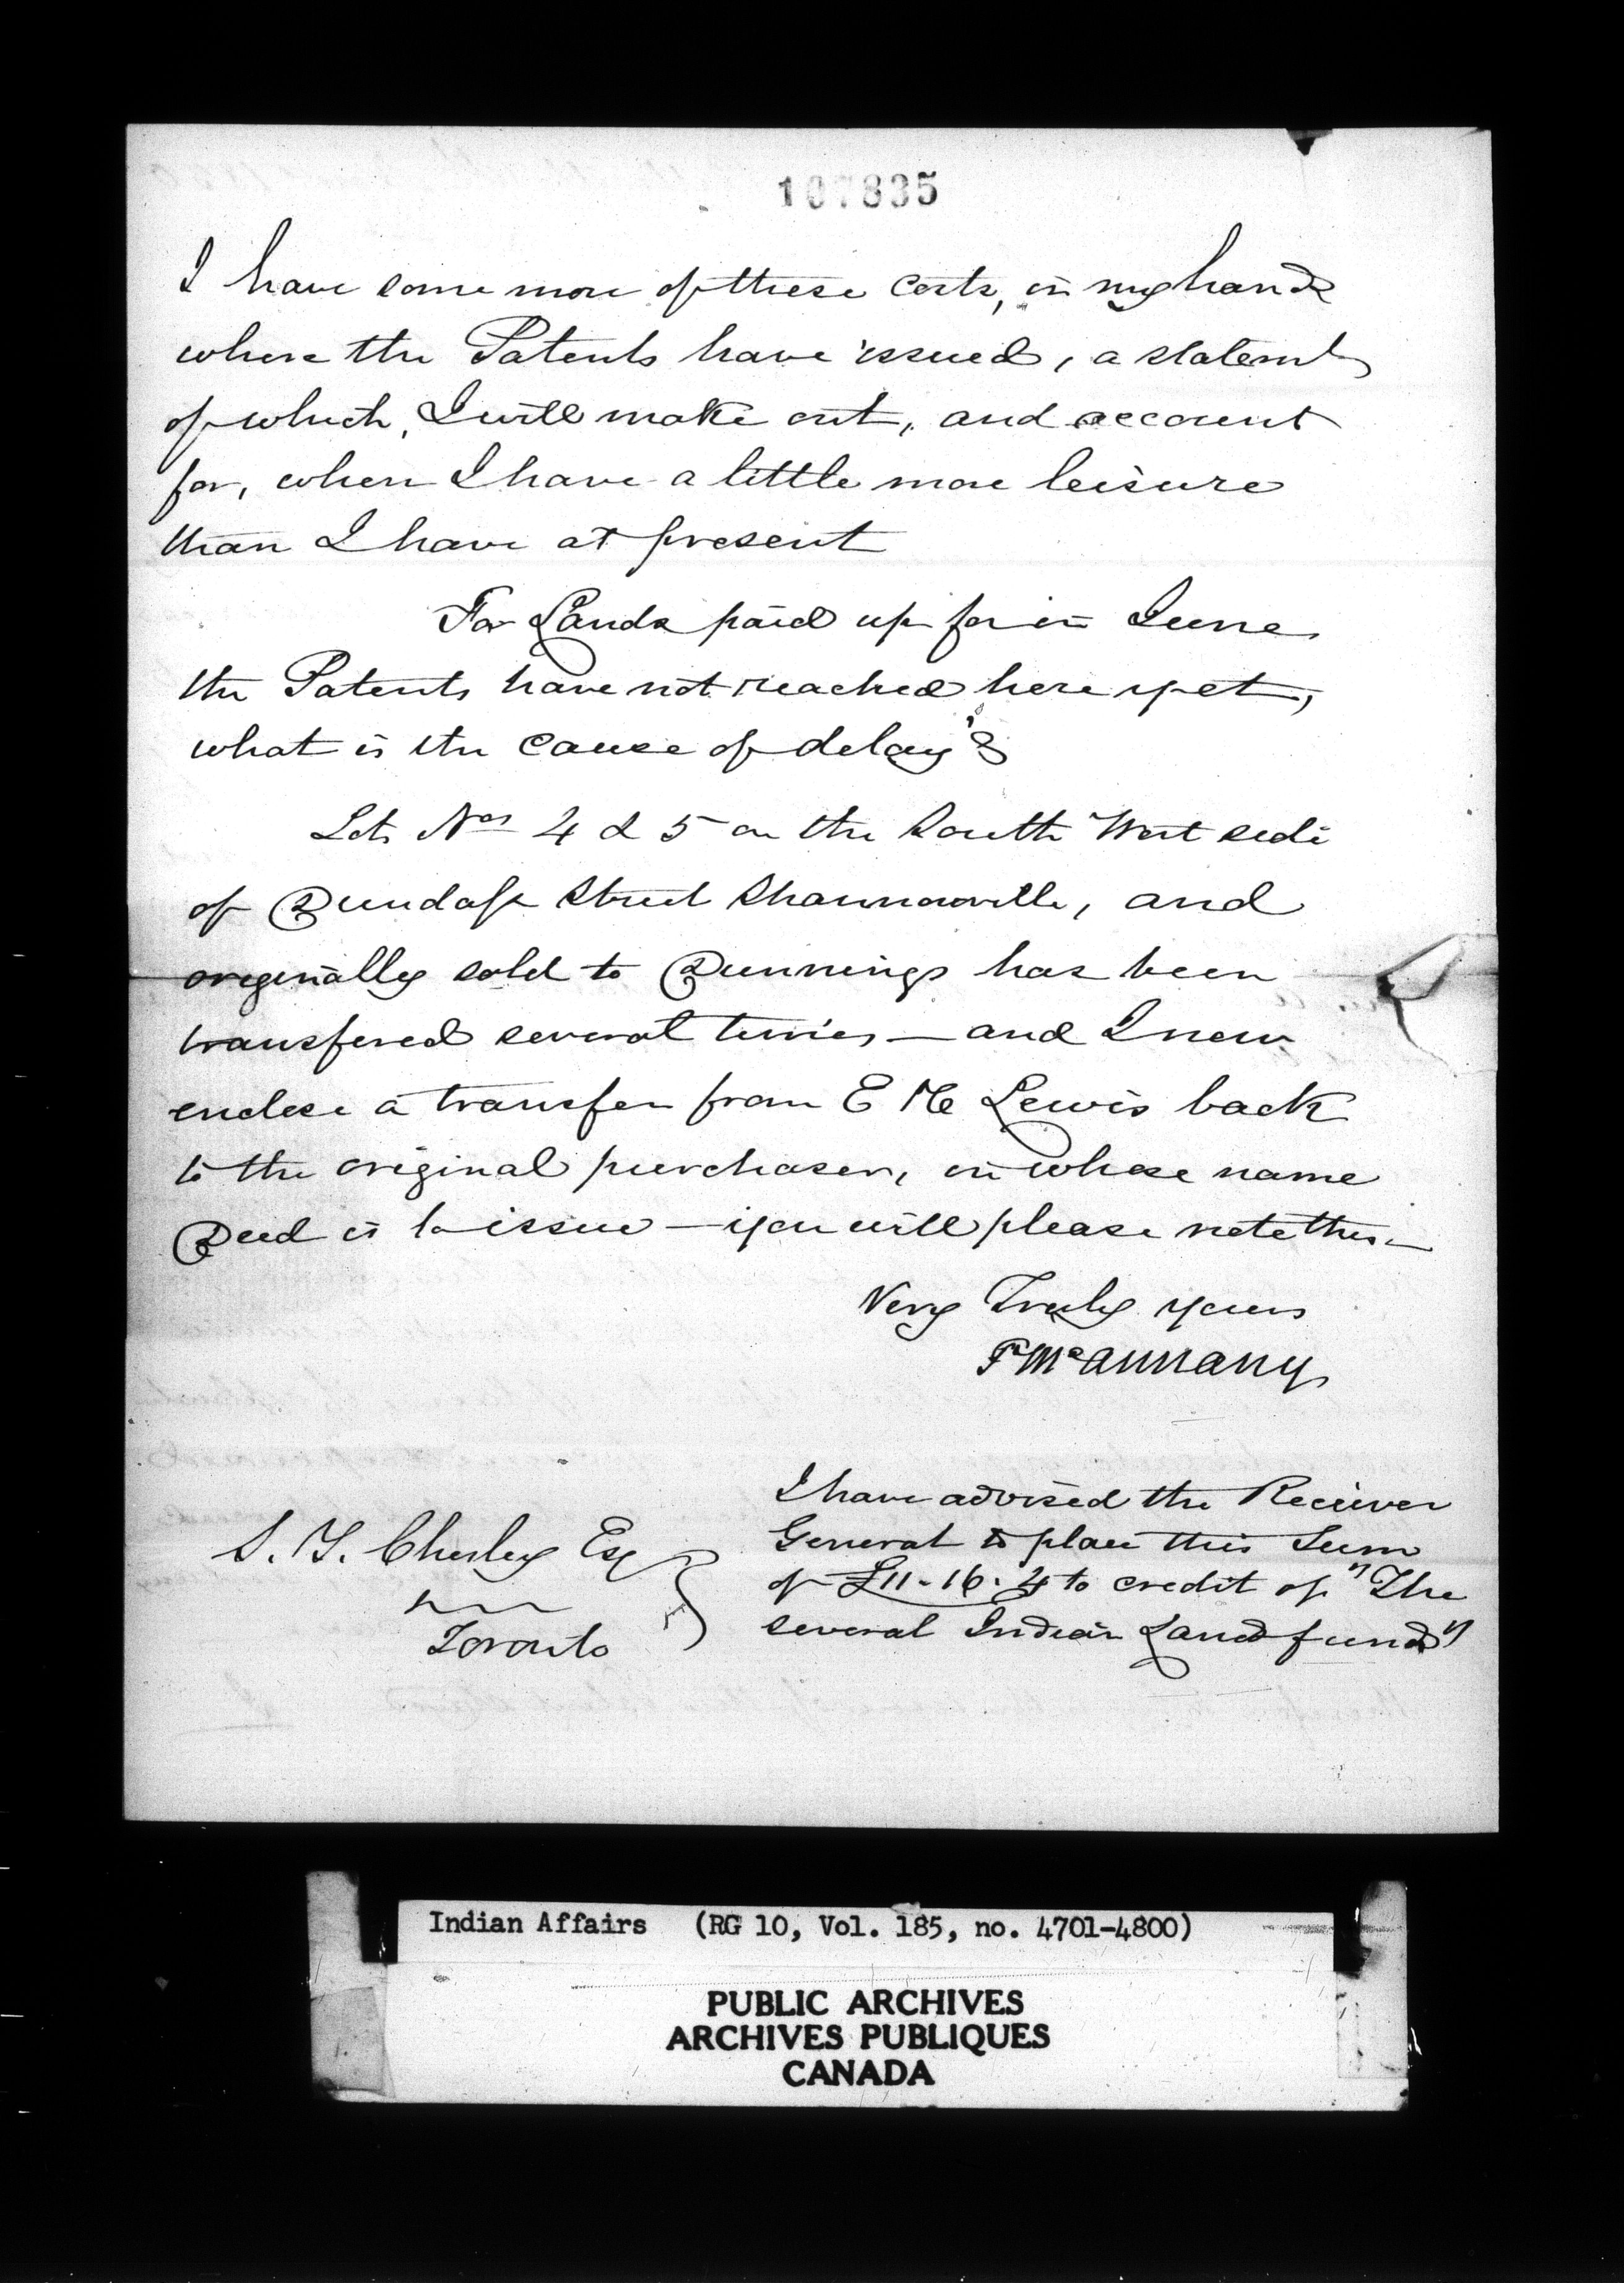 107835
I have some more of these costs, in my hands
where the Patents have issued, a statemt
of which, I will make out, and account
for, when I have a little more leisure
than I have at present
For Lands paid up for in June
the Patents have not reached here yet,
what is the cause of delay?
Lots Nos 4 & 5 on the South West side
of Dundass Street Shannonville, and
originally sold to Dunnings has been
transfered several times — and I now
enclose a transfer from E Lewis back
to the original purchaser, in whose name
Deed is to issue — you will please note this —
Very Truly yours
T McAnnany
I have advised the Reciever
General to place this Sum
of £11-16.4 to credit of "The
several Indian Land funds"
S. Y. Chesley Esq
Toronto
Indian Affairs (RG 10, Vol. 185, no. 4701-4800)
PUBLIC ARCHIVES
ARCHIVES PUBLIQUES
CANADA